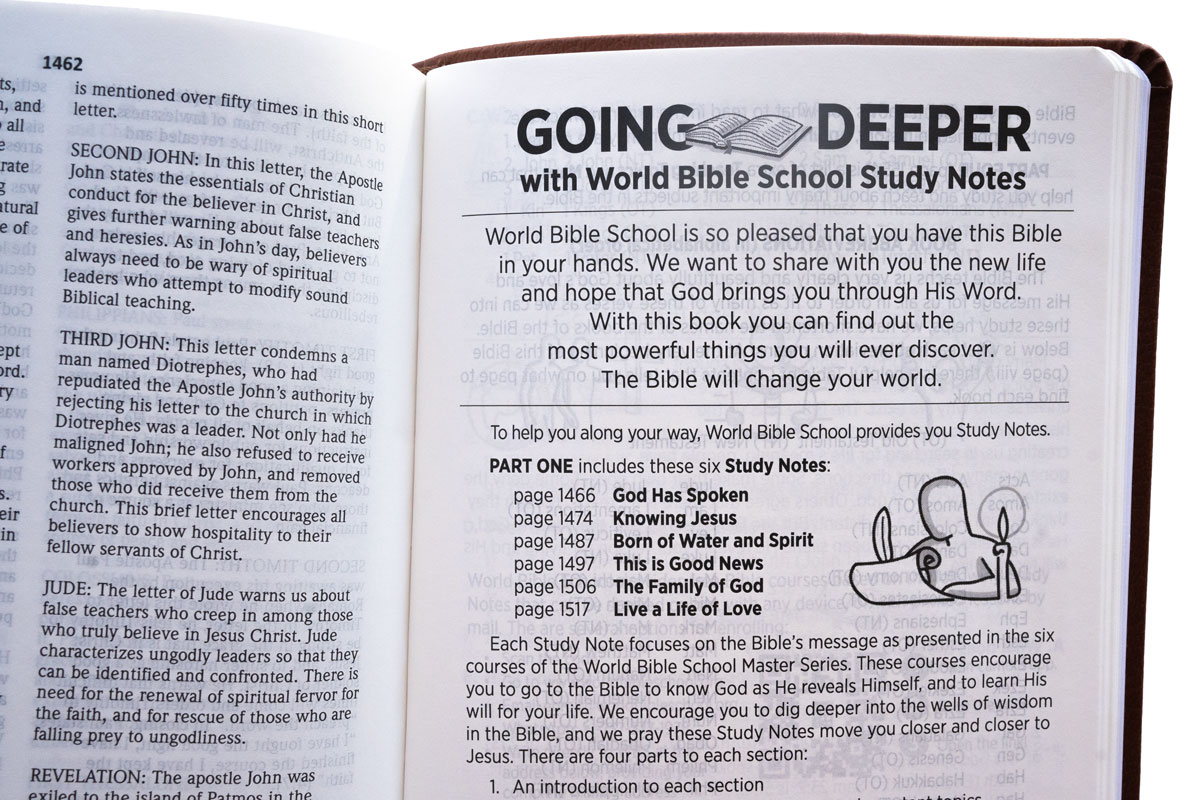 1462
ts,
n, and
all
e
rate
g
atural
e of
ept
ord.
ry
f
s.
eir
in
is mentioned over fifty times in this short
letter.
SECOND JOHN: In this letter, the Apostle
John states the essentials of Christian
conduct for the believer in Christ, and
gives further warning about false teachers
and heresies. As in John’s day, believers
always need to be wary of spiritual
leaders who attempt to modify sound
Biblical teaching.
THIRD JOHN: This letter condemns a
man named Diotrephes, who had
repudiated the Apostle John’s authority by
rejecting his letter to the church in which
Diotrephes was a leader. Not only had he
maligned John; he also refused to receive
workers approved by John, and removed
those who did receive them from the
church. This brief letter encourages all
believers to show hospitality to their
fellow servants of Christ.
JUDE: The letter of Jude warns us about
false teachers who creep in among those
who truly believe in Jesus Christ. Jude
characterizes ungodly leaders so that they
can be identified and confronted. There is
need for the renewal of spiritual fervor for
the faith, and for rescue of those who are
falling prey to ungodliness.
REVELATION: The apostle John was
exiled to the island of Patmos in the
GOING DEEPER
with World Bible School Study Notes
World Bible School is so pleased that you have this Bible
in your hands. We want to share with you the new life
and hope that God brings you through His Word.
With this book you can find out the
most powerful things you will ever discover.
The Bible will change your world.
To help you along your way, World Bible School provides you Study Notes.
PART ONE includes these six Study Notes:
page 1466 God Has Spoken
page 1474 Knowing Jesus
page 1487 Born of Water and Spirit
page 1497 This is Good News
page The Family of God
page 1517 Live a Life of Love
Each Study Note focuses on the Bible’s message as presented in the six
courses of the World Bible School Master Series. These courses encourage
you to go to the Bible to know God as He reveals Himself, and to learn His
will for your life. We encourage you to dig deeper into the wells of wisdom
in the Bible, and we pray these Study Notes move you closer and closer to
Jesus. There are four parts to each section:
1. An introduction to each section
topics